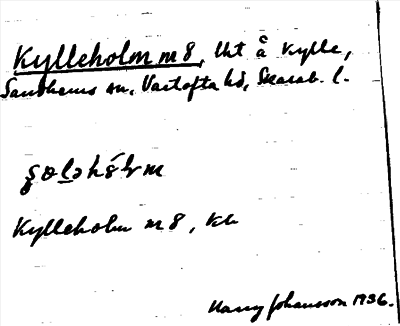 Kylleholm m 8, Uht å Kylle,
Sandhems sn, Vartofta hd, Skarab. l.
Kylleholm m 8, kh
Harry Johansson 1936.